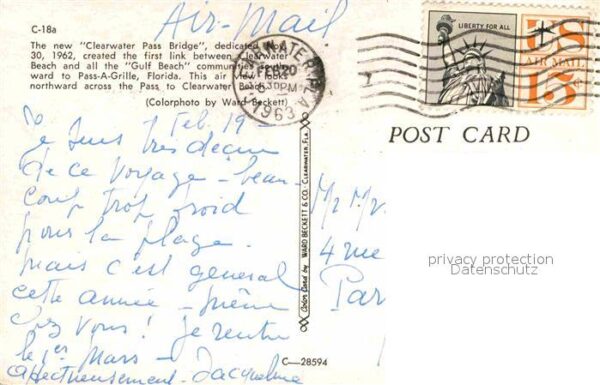 Air-Mail
C-18a
The new "Clearwater Pass Bridge", dedicated Nov.
30, 1962, created the first link between Clearwater
Beach and all the "Gulf Beach" communities
ward to Pass-A-Grille, Florida. This air view looks
northward across the Pass to Clearwater Beach.
(Colorphoto by Ward Beckett)
CLEARWATER, FLA.
FEB 20
PM
1963
LIBERTY FOR ALL
US
AIR MAIL
15¢
POST CARD
Feb. 19
Je suis très déçue
de ce voyage - beau-
coup trop froid
pour la plage.
mais c'est general
cette année - même
chez vous! je rentre
le 1er Mars -
affectueusement - Jacqueline
Color Card by WARD BECKETT & CO. CLEARWATER, FLA.
C-28594
Mr Mr.
4 rue
Par
privacy protection
Datenschutz